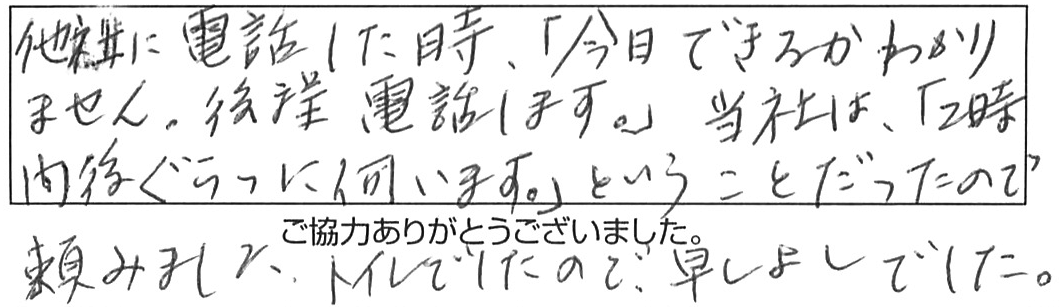 他社に電話した時、「今日できるかわかり
ません。後程電話します。」当社は、「2時
間後ぐらいに伺います。」ということだったので
ご協力ありがとうございました。
頼みました、トイレでしたので、早しよしでした。